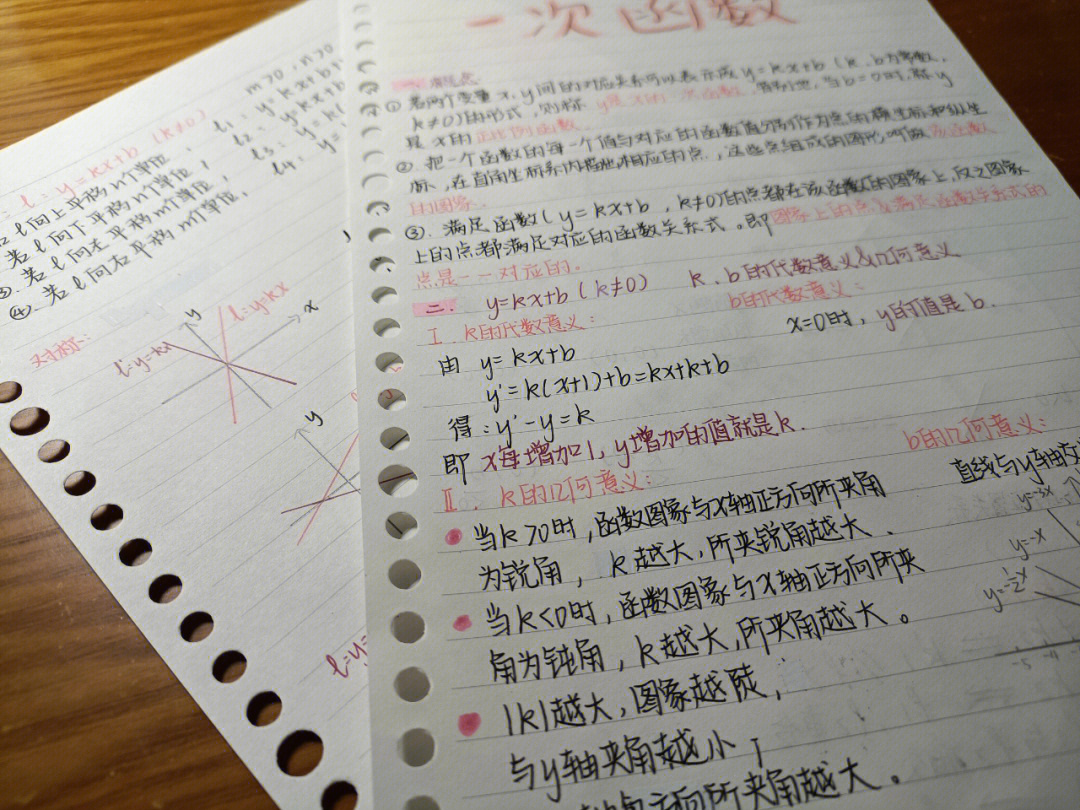 一次函数
一、概念
① 若两个变量 x、y 间的对应关系可以表示成 y=kx+b (k、b为常数,
k≠0)的形式,则称 y是x的一次函数。特别地,当b=0时,称y
是x的正比例函数。
② 把一个函数的每一个值与对应的函数值分别作为点的横坐标和纵坐
标,在直角坐标系内描出相应的点,这些点组成的图形叫做该函数
的图象.
③. 满足函数(y=kx+b,k≠0)的点都在该函数的图象上,反之图象
上的点都满足对应的函数关系式。即图象上的点与满足函数关系式的
点是一一对应的.
二. y=kx+b(k≠0) k、b的代数意义&几何意义
Ⅰ. k的代数意义: b的代数意义:
由 y=kx+b x=0时, y的值是b.
y'=k(x+1)+b=kx+k+b
得:y'-y=k
即 x每增加1,y增加的值就是k.
Ⅱ. k的几何意义: b的几何意义:
当k>0时,函数图象与x轴正方向所夹角 直线与y轴
为锐角, k越大,所夹锐角越大.
当k<0时,函数图象与x轴正方向所夹
角为钝角,k越大,所夹角越大。
|k|越大,图象越陡,
与y轴夹角越小
方向所夹角越大。
y=-3x
y=-x
y=-1/2x
-5 -4
l:y=kx+b (k≠0) m>0,n>0
若l向上平移n个单位, l1: y=kx+b
若l向下平移n个单位, l2: y=kx+b
③. 若l向左平移m个单位, l3: y=k(
④. 若l向右平移m个单位, l4: y=
对称:
l:y=kx
l':y=-kx
y
x
y
l=y=